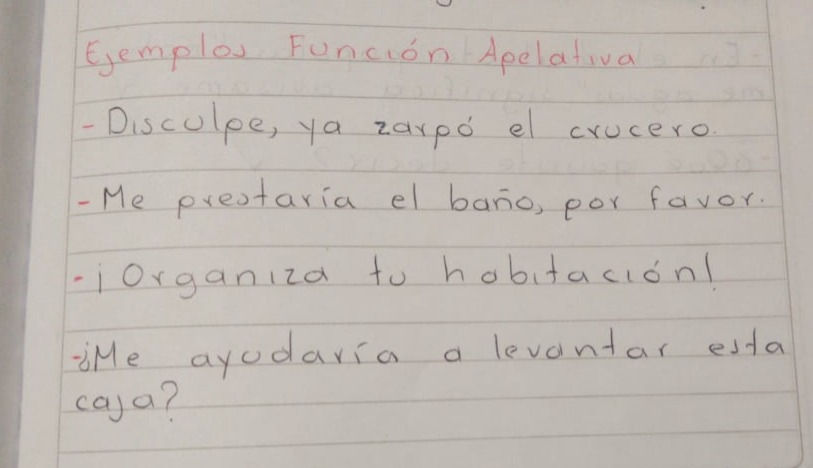 Ejemplos Función Apelativa
- Disculpe, ya zarpó el crucero.
- Me prestaría el baño, por favor.
- ¡Organiza tu habitación!
- ¿Me ayudaría a levantar esta
caja?